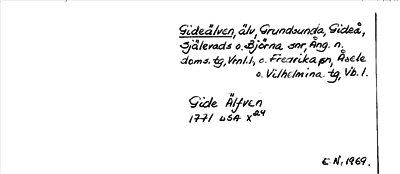 Gideälven, älv, Grundsunda, Gideå,
Själevads o. Björna snr, Ång. n.
doms. tg, Vrnl. l, o. Fredrika sn, Åsele
o. Vilhelmina tg, Vb. l.
Gide Älfven
1771 LSA X 24
E. N. 1969.